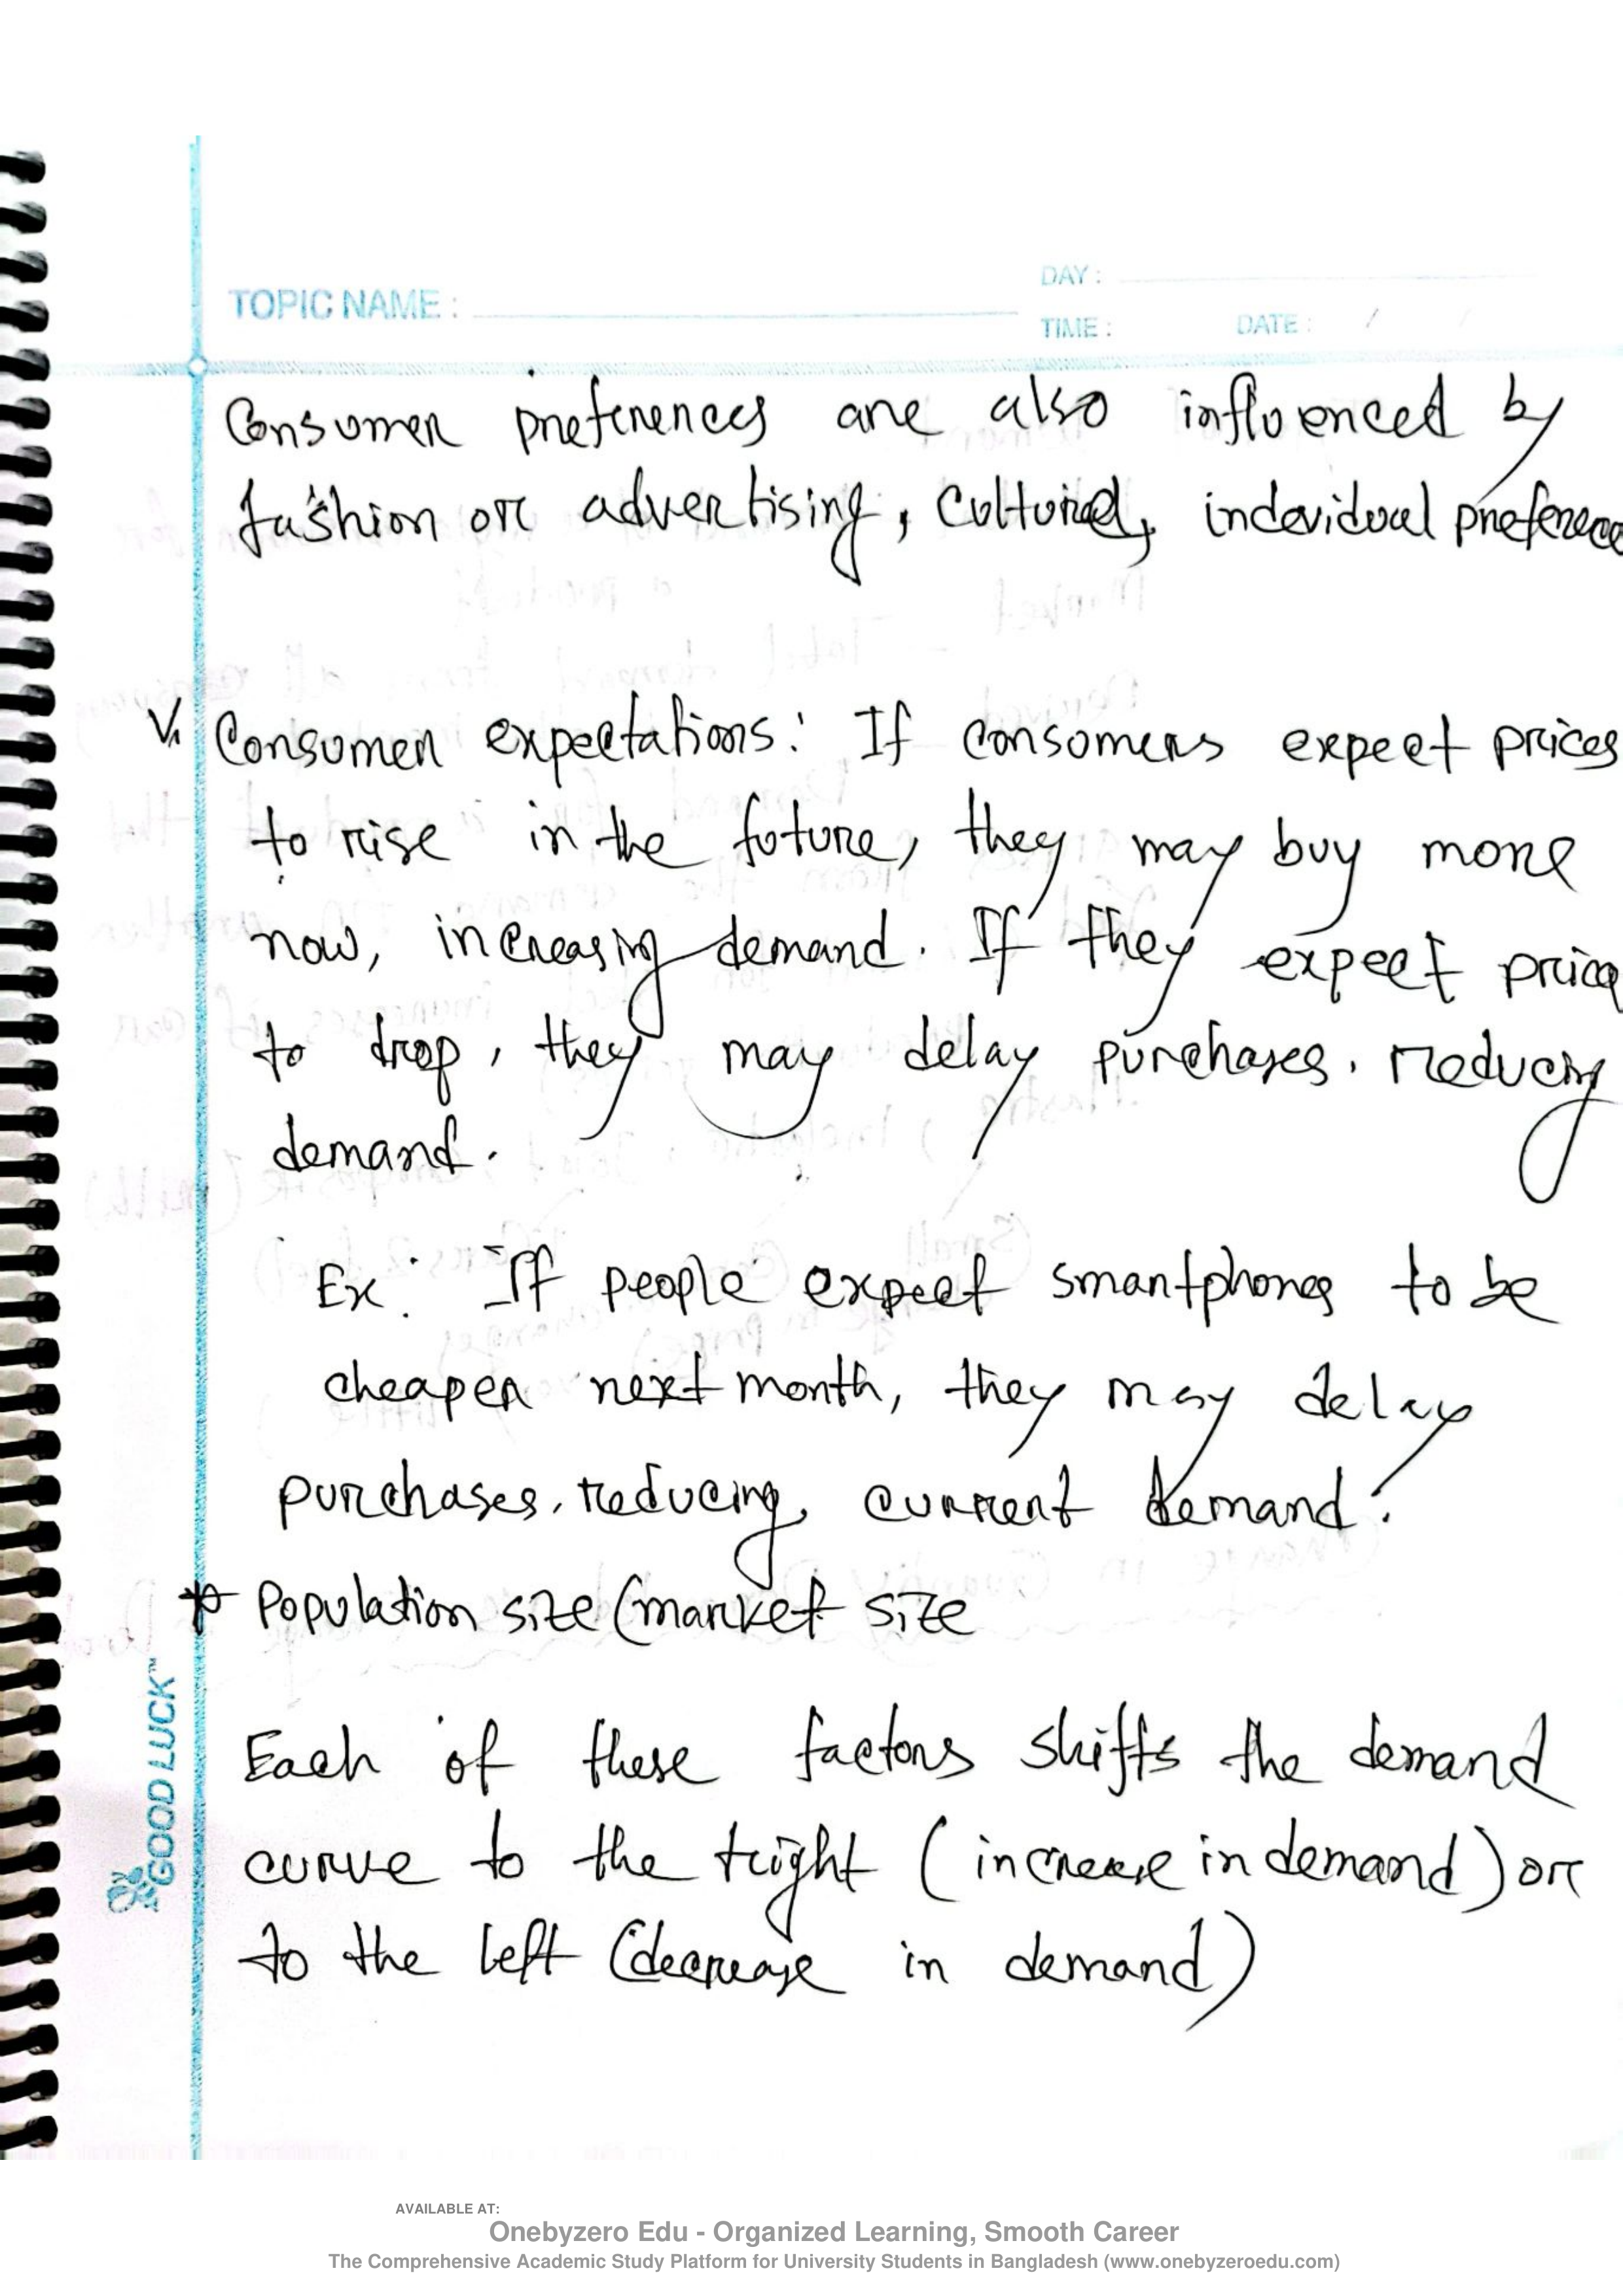 DAY :
TOPIC NAME :
TIME : DATE : / /
Consumer preferences are also influenced by
fashion or advertising, Cultural, indevidual preference
V. Consumer expectations: If consumers expect prices
to rise in the future, they may buy more
now, increasing demand. If they expect price
to drop, they may delay purchases, reducing
demand.
Ex: If people expect smartphones to be
cheaper next month, they may delay
purchases, reducing current demand.
* Population size (market size
Each of these factors shifts the demand
curve to the right (increase in demand) or
to the left (decrease in demand)
GOOD LUCK™
AVAILABLE AT:
Onebyzero Edu - Organized Learning, Smooth Career
The Comprehensive Academic Study Platform for University Students in Bangladesh (www.onebyzeroedu.com)